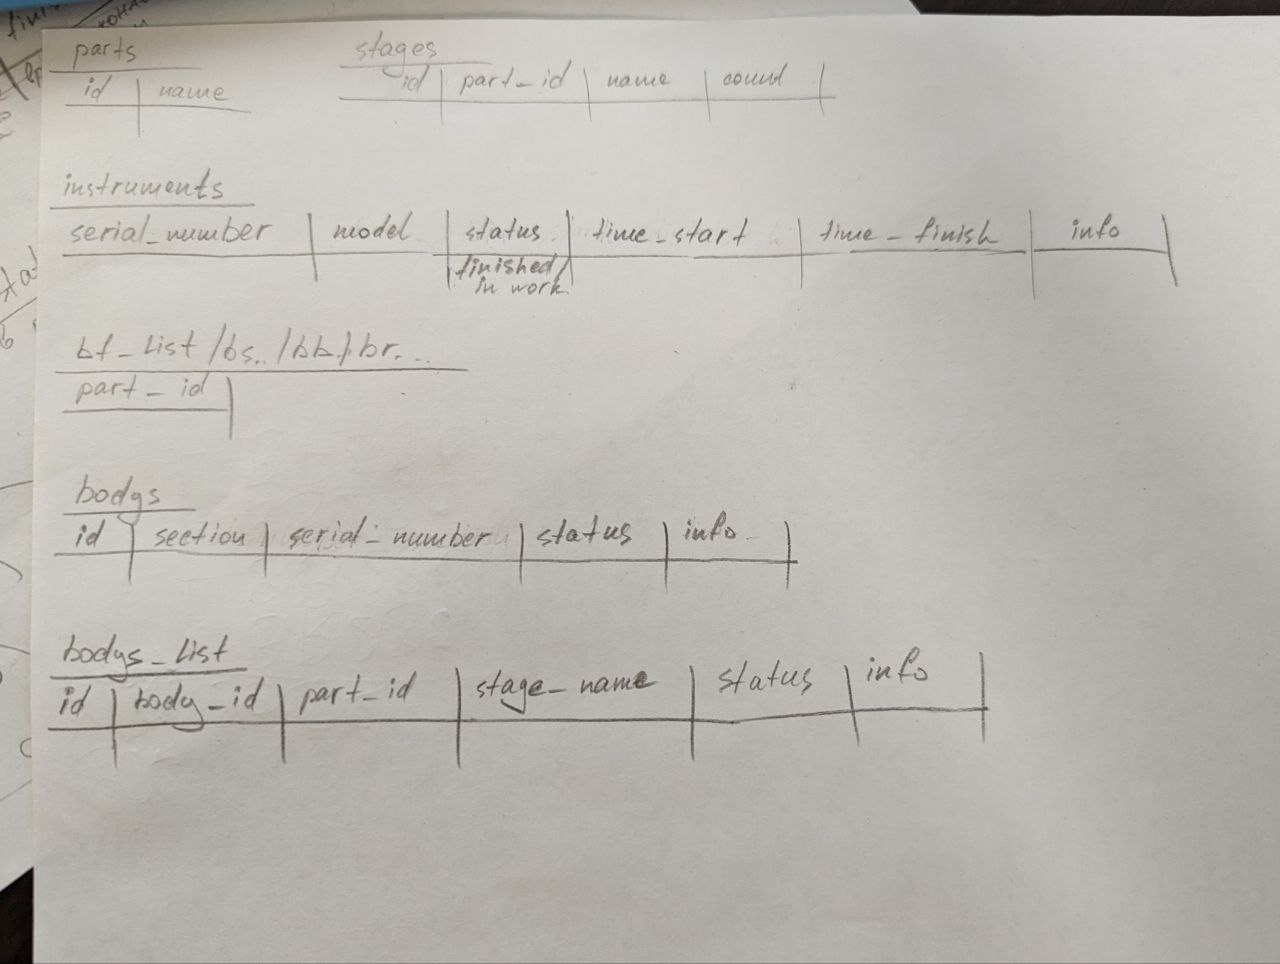 parts
id name
stages
id part_id name count
instruments
serial_number model status time_start time_finish info
finished/
in work
bf_list /bs.. /bb./br...
part_id
bodys
id section serial_number status info
bodys_list
id body_id part_id stage_name status info